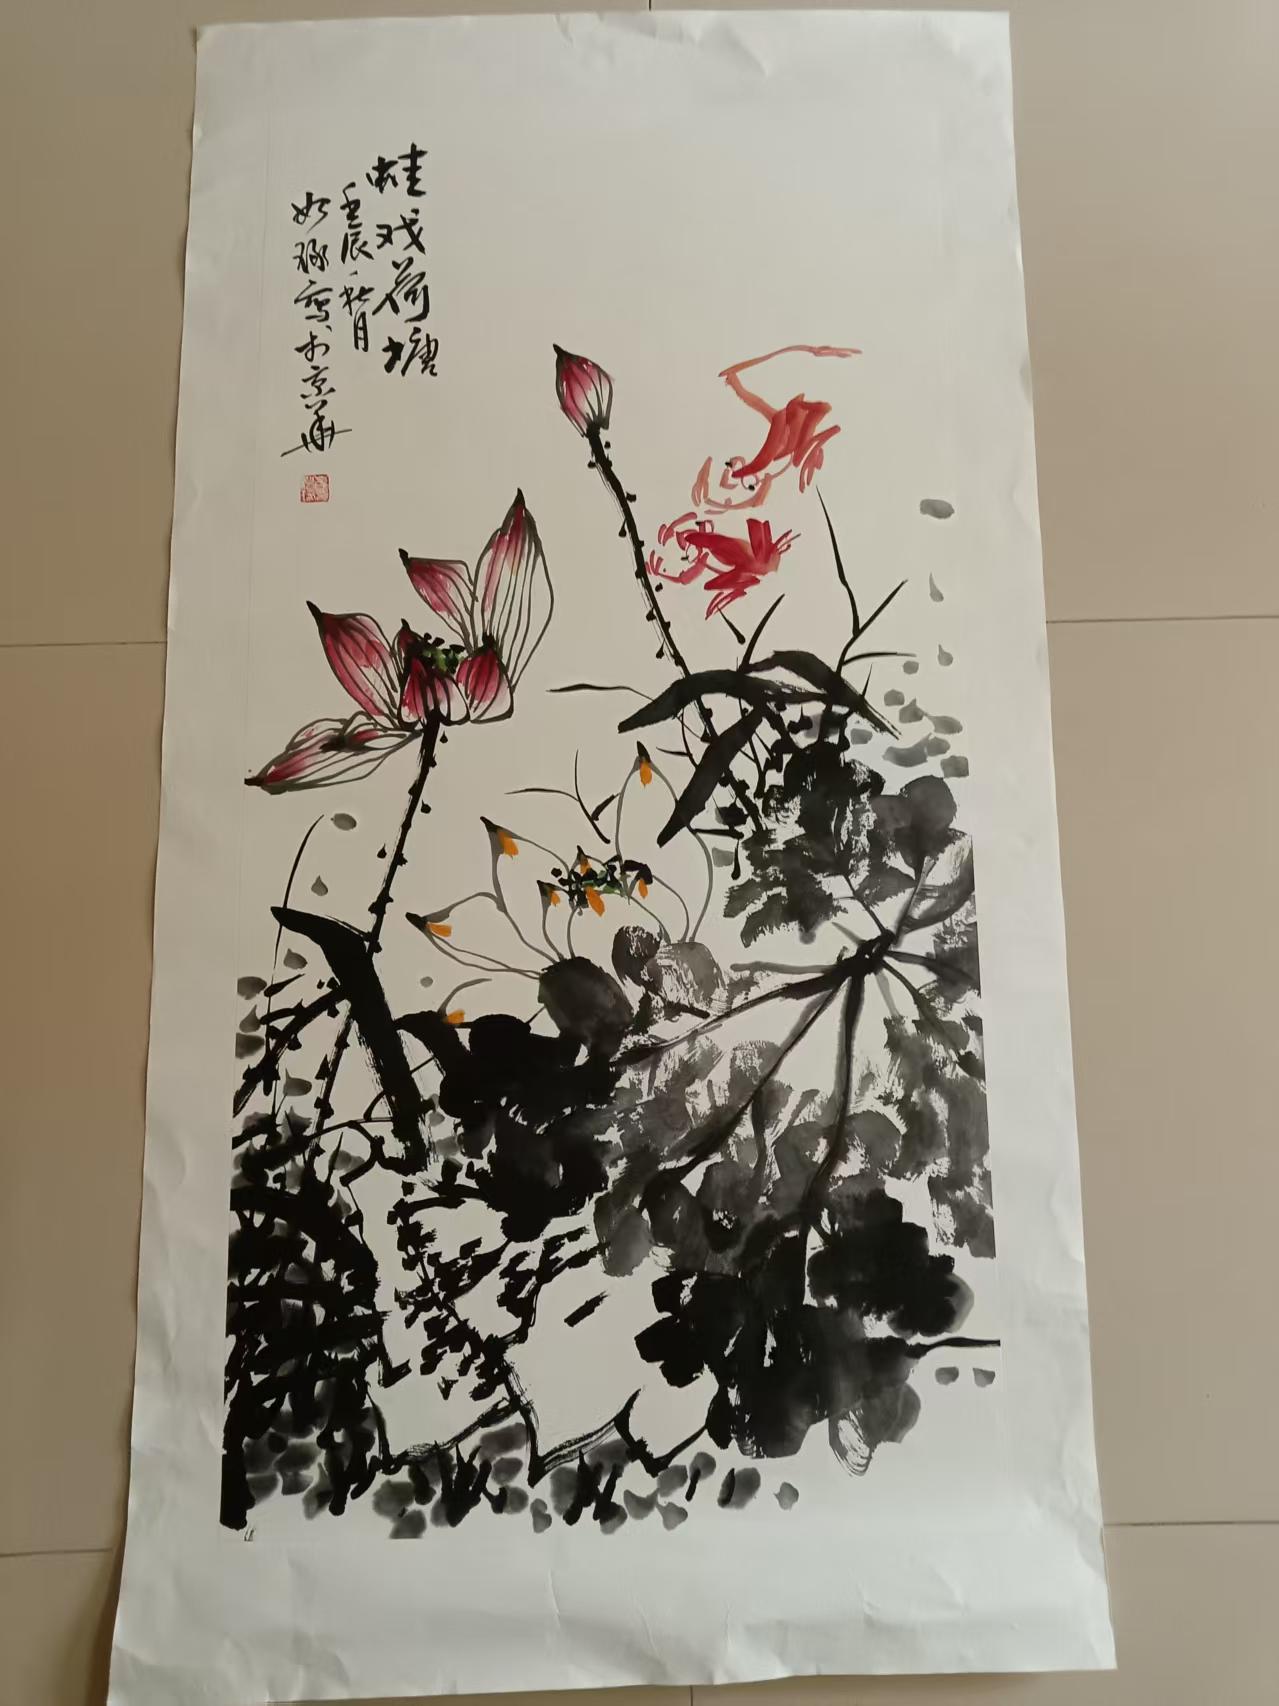 蛙戏荷塘
壬辰秋月
如琢写于京华